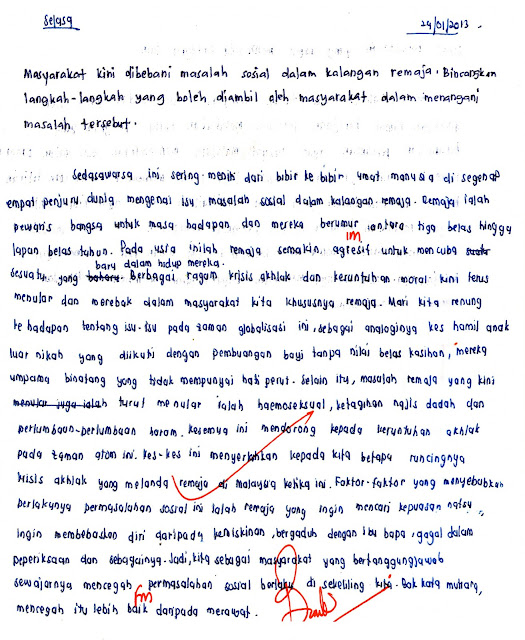 Selasa 29/01/2013.
Masyarakat kini dibebani masalah sosial dalam kalangan remaja. Bincangkan
langkah-langkah yang boleh diambil oleh masyarakat dalam menangani
masalah tersebut.
Sedasawarsa ini sering meniti dari bibir ke bibir umat manusia di segenap
empat penjuru dunia mengenai isu masalah sosial dalam kalangan remaja. Remaja ialah
pewaris bangsa untuk masa hadapan dan mereka berumur antara tiga belas hingga
lapan belas tahun. Pada usia inilah remaja semakin agresif untuk mencuba
im
baru dalam hidup mereka.
sesuatu yang Berbagai ragam krisis akhlak dan keruntuhan moral kini terus
menular dan merebak dalam masyarakat kita khususnya remaja. Mari kita renung
ke hadapan tentang isu-isu pada zaman globalisasi ini, sebagai analoginya kes hamil anak
luar nikah yang diikuti dengan pembuangan bayi tanpa nilai belas kasihan, mereka
umpama binatang yang tidak mempunyai hati perut. Selain itu, masalah remaja yang kini
menular juga ialah turut menular ialah haemoseksual, ketagihan najis dadah dan
perlumbaan-perlumbaan haram. Kesemua ini mendorong kepada keruntuhan akhlak
pada zaman atom ini. Kes-kes ini menyerlahkan kepada kita betapa runcingnya
krisis akhlak yang melanda remaja di Malaysia ketika ini. Faktor-faktor yang menyebabkan
berlakunya permasalahan sosial ini ialah remaja yang ingin mencari kepuasan nafsu,
ingin membebaskan diri daripada kemiskinan, bergaduh dengan ibu bapa, gagal dalam
peperiksaan dan sebagainya. Jadi, kita sebagai masyarakat yang bertanggungjawab
sewajarnya mencegah permasalahan sosial berlaku di sekeliling kita. Bak kata mutiara,
mencegah itu lebih baik daripada merawat.
Fm